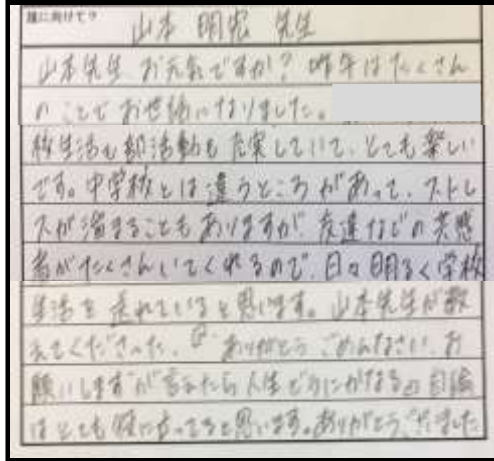 誰に向けて？ 山本 明宏 先生
山本先生 お元気ですか？ 昨年はたくさん
のことでお世話になりました。
校生活も部活動も充実していて、とても楽しい
です。中学校とは違うところがあって、ストレ
スが溜まることもありますが、友達などの共感
者がたくさんいてくれるので、日々明るく学校
生活を送れていると思います。山本先生が教
えてくださった、"ありがとう、ごめんなさい、お
願いします"が言えたら人生どうにかなるの自論
はとても役に立ってると思います。ありがとうございました